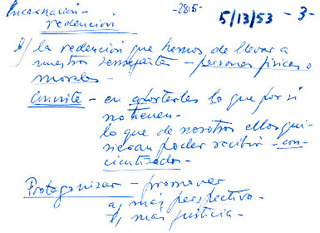 Encarnación - -285- 5/13/53 -3-
redención
1) la redención que hemos de llevar a
nuestros semejantes - personas físicas o
morales -
- en lo que por sí
no tienen -
lo que de nosotros ellos qui-
sieran poder recibir - con-
cientizados -
Protagonizar - promover
a, más perspectiva -
b, más justicia -